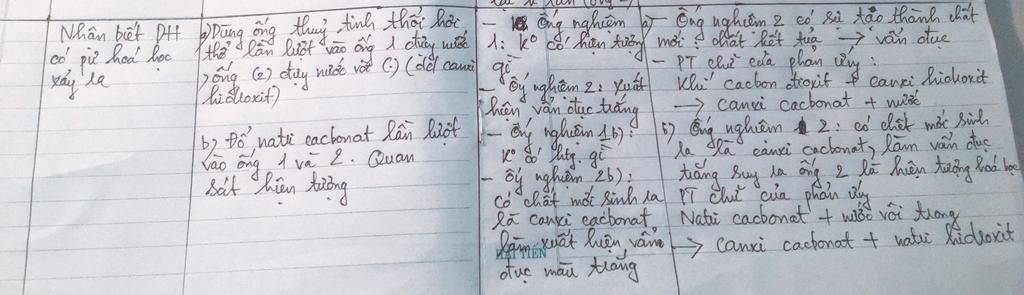 Nhân biết PH
có pứ hoá học
xảy ra
a) Dùng ống thuỷ tinh thổi hơi
thở lần lượt vào ống 1 đựng nước
, ống (2) đựng nước vôi (:) (dd canxi
hidroxit)
b) Đổ natri cacbonat lần lượt
vào ống 1 và 2. Quan
sát hiện tượng
- Ống nghiệm
1: K° có hiện tượng
gì
- Ốý nghiệm 2: xuất
hiện vẩn đục trắng
- Ốrý nghiệm 1b):
K° có htg. gì
- Ốý nghiệm 2b):
có chất mới sinh ra
là canxi cacbonat
làm xuất hiện vẩn
đục màu trắng
HẢI TIẾN
a) - Ống nghiệm 2 có sự tạo thành chất
mới: chất kết tủa → vẩn đục
- PT chữ của phản ứng:
Khí cacbon đioxit + canxi hidroxit
→ canxi cacbonat + nước
b) Ống nghiệm 2: có chất mới sinh
ra là canxi cacbonat, làm vẩn đục
trắng suy ra ống 2 là hiện tượng hoá học
PT chữ của phản ứng
Natri cacbonat + nước vôi trong
→ canxi cacbonat + natri hidroxit